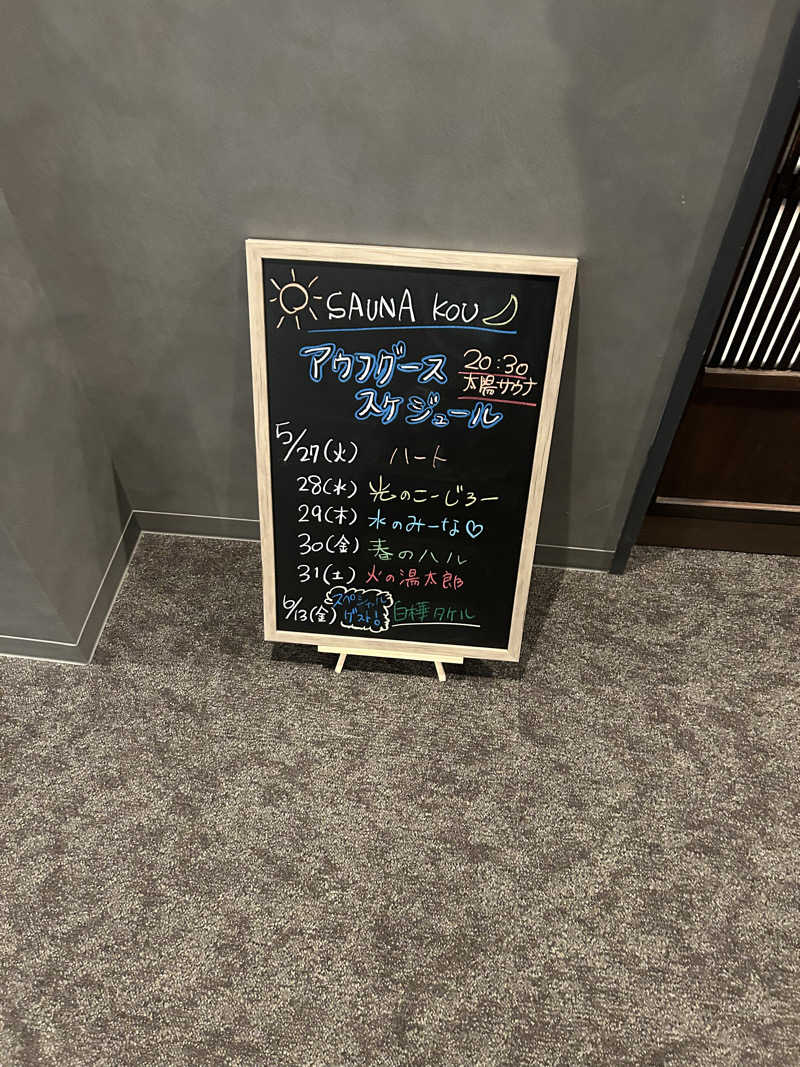 SAUNA KOU
アウフグース 20:30
スケジュール 太陽サウナ
5/27(火) ハート
28(水) 光のこーじろー
29(木) 水のみーな♡
30(金) 春のハル
31(土) 火の湯太郎
6/13(金) スペシャルゲスト! 白樺タケル